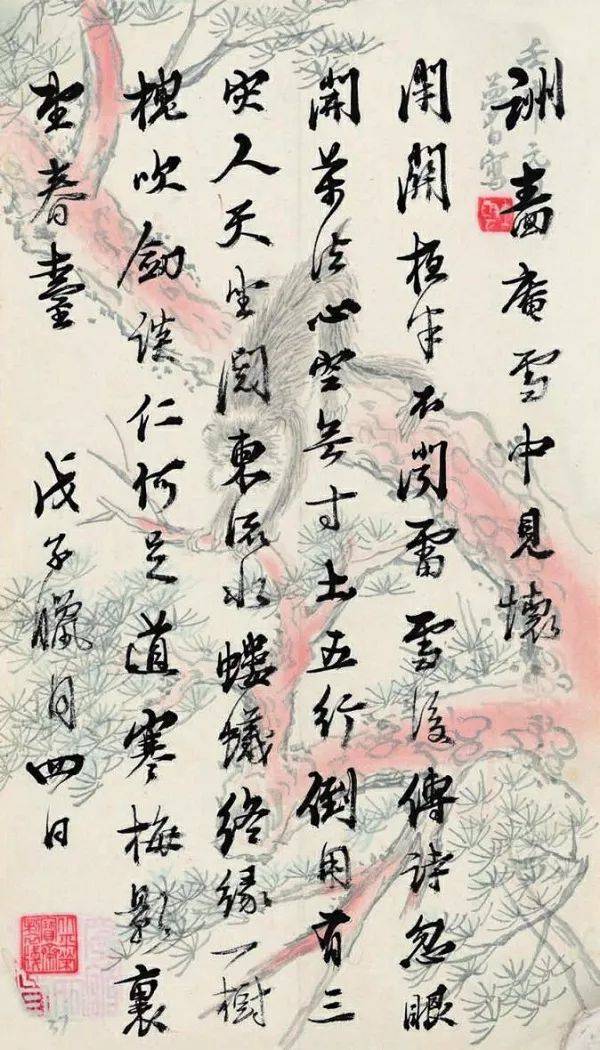 詶嗇庵雪中見懷
閉關年不聞雷雪後傳詩忽眼
開萬法心空無寸土五行倒用有三
灾人天坐閱東流水螻蟻終緣一樹
槐吹劍談仁何足道寒梅影裏
望春臺 戊子臘月四日
夢白寫